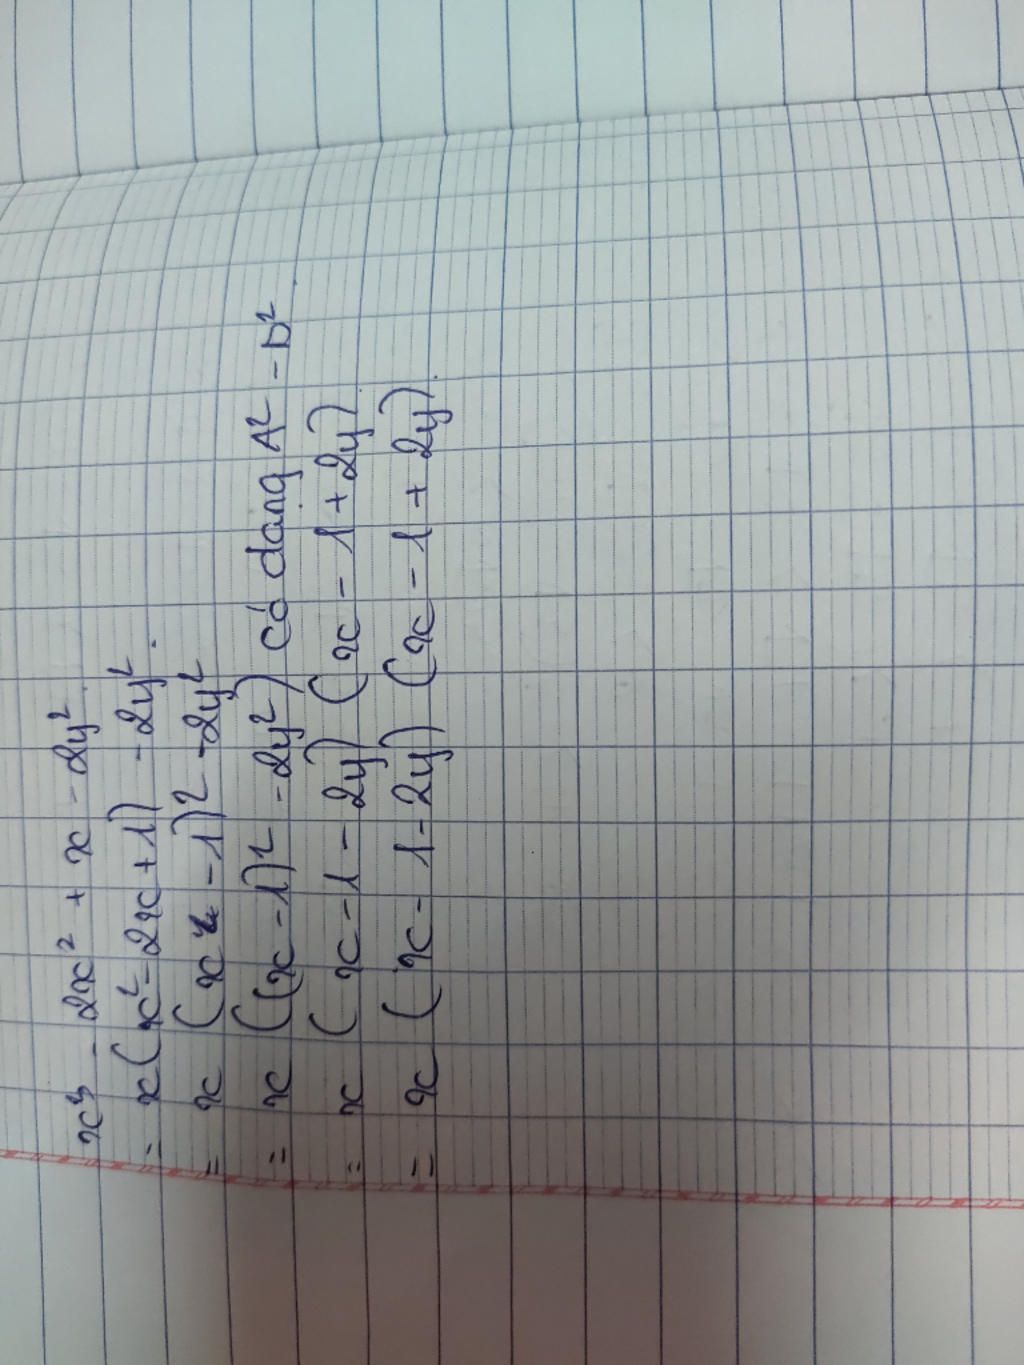 x³ - 2x² + x - 2y²
= x(x² - 2x + 1) - 2y².
= x (x - 1)² - 2y²
= x ((x - 1)² - 2y²) có dạng A² - D²
= x (x - 1 - 2y) (x - 1 + 2y)
= x (x - 1 - 2y) (x - 1 + 2y).